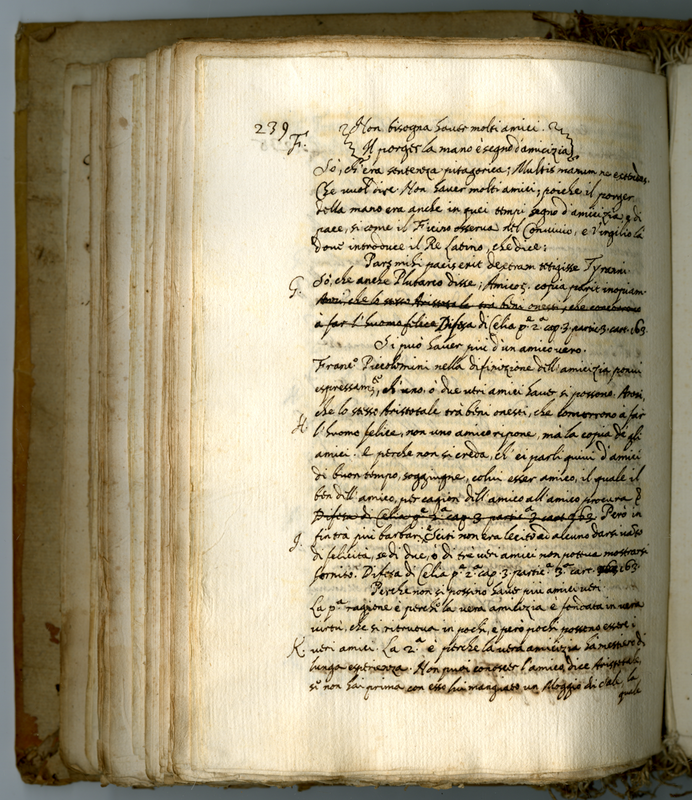 239
F. Non bisogna haver molti amici.
Il porger la mano è segno d'amicizia
Sò, ch'era sentenza pitagorica; Multis manum ne extendas.
Che vuol dire. Non haver molti amici; poiche il porger
della mano era anche in quei tempi segno d'amicizia, e di
pace, si come il Ficino osserva del Convivio, e Virgilio là
dove introduce il Re Latino, che dice;
Pars mihi pacis erit dextram tetigisse Tyranni.
G. Sò, che anche Plutarco disse; Amicor. copia parit inopiam.
Anzi che lo stesso Aristotele trà beni onesti, che concorrono
à far l'huomo felice Difesa di Celia pe. 2a. cap. 3. partic. 3. cart. 163.
Si può haver più d'un amico vero.
Franco. Piccolomini nella difinizione dell'amicizia pone
espressamte., ch'uno, o due veri amici haver si possono. Anzi,
che lo stesso Aristotale trà beni onesti, che concorrono à far
H. l'huomo felice, non uno amico ripone, ma la copia de gli
amici. E perche non si creda, ch'ei parli quivi d'amici
di buon tempo, soggiugne, colui esser amico, il quale il
ben dell'amico, per cagion dell'amico all'amico procura. E
Difesa di Celia pe. 2a. cap. 3. partic. 3. cart. 163. Però in
fin trà più barbari Sciti non era lecito ad alcuno darsi vanto
J. di felicità, se di due, ò di trè veri amici non poteva mostrarsi
fornito. Difesa di Celia pa. 2a. cap. 3. partic. 3a. cart. 163.
Perche non si possino haver più amici veri
La pa. ragione è perche la vera amicizia è fondata in vera
virtù, che si ritruova in pochi, e però pochi possono essere i
K. veri amici. La 2a. è perche la vera amicizia hà mestiere di
lunga esperienza. Non puoi conoscer l'amico, dice Aristotele,
se non hai prima con esso lui mangiato un Moggio di Sale, la
quale